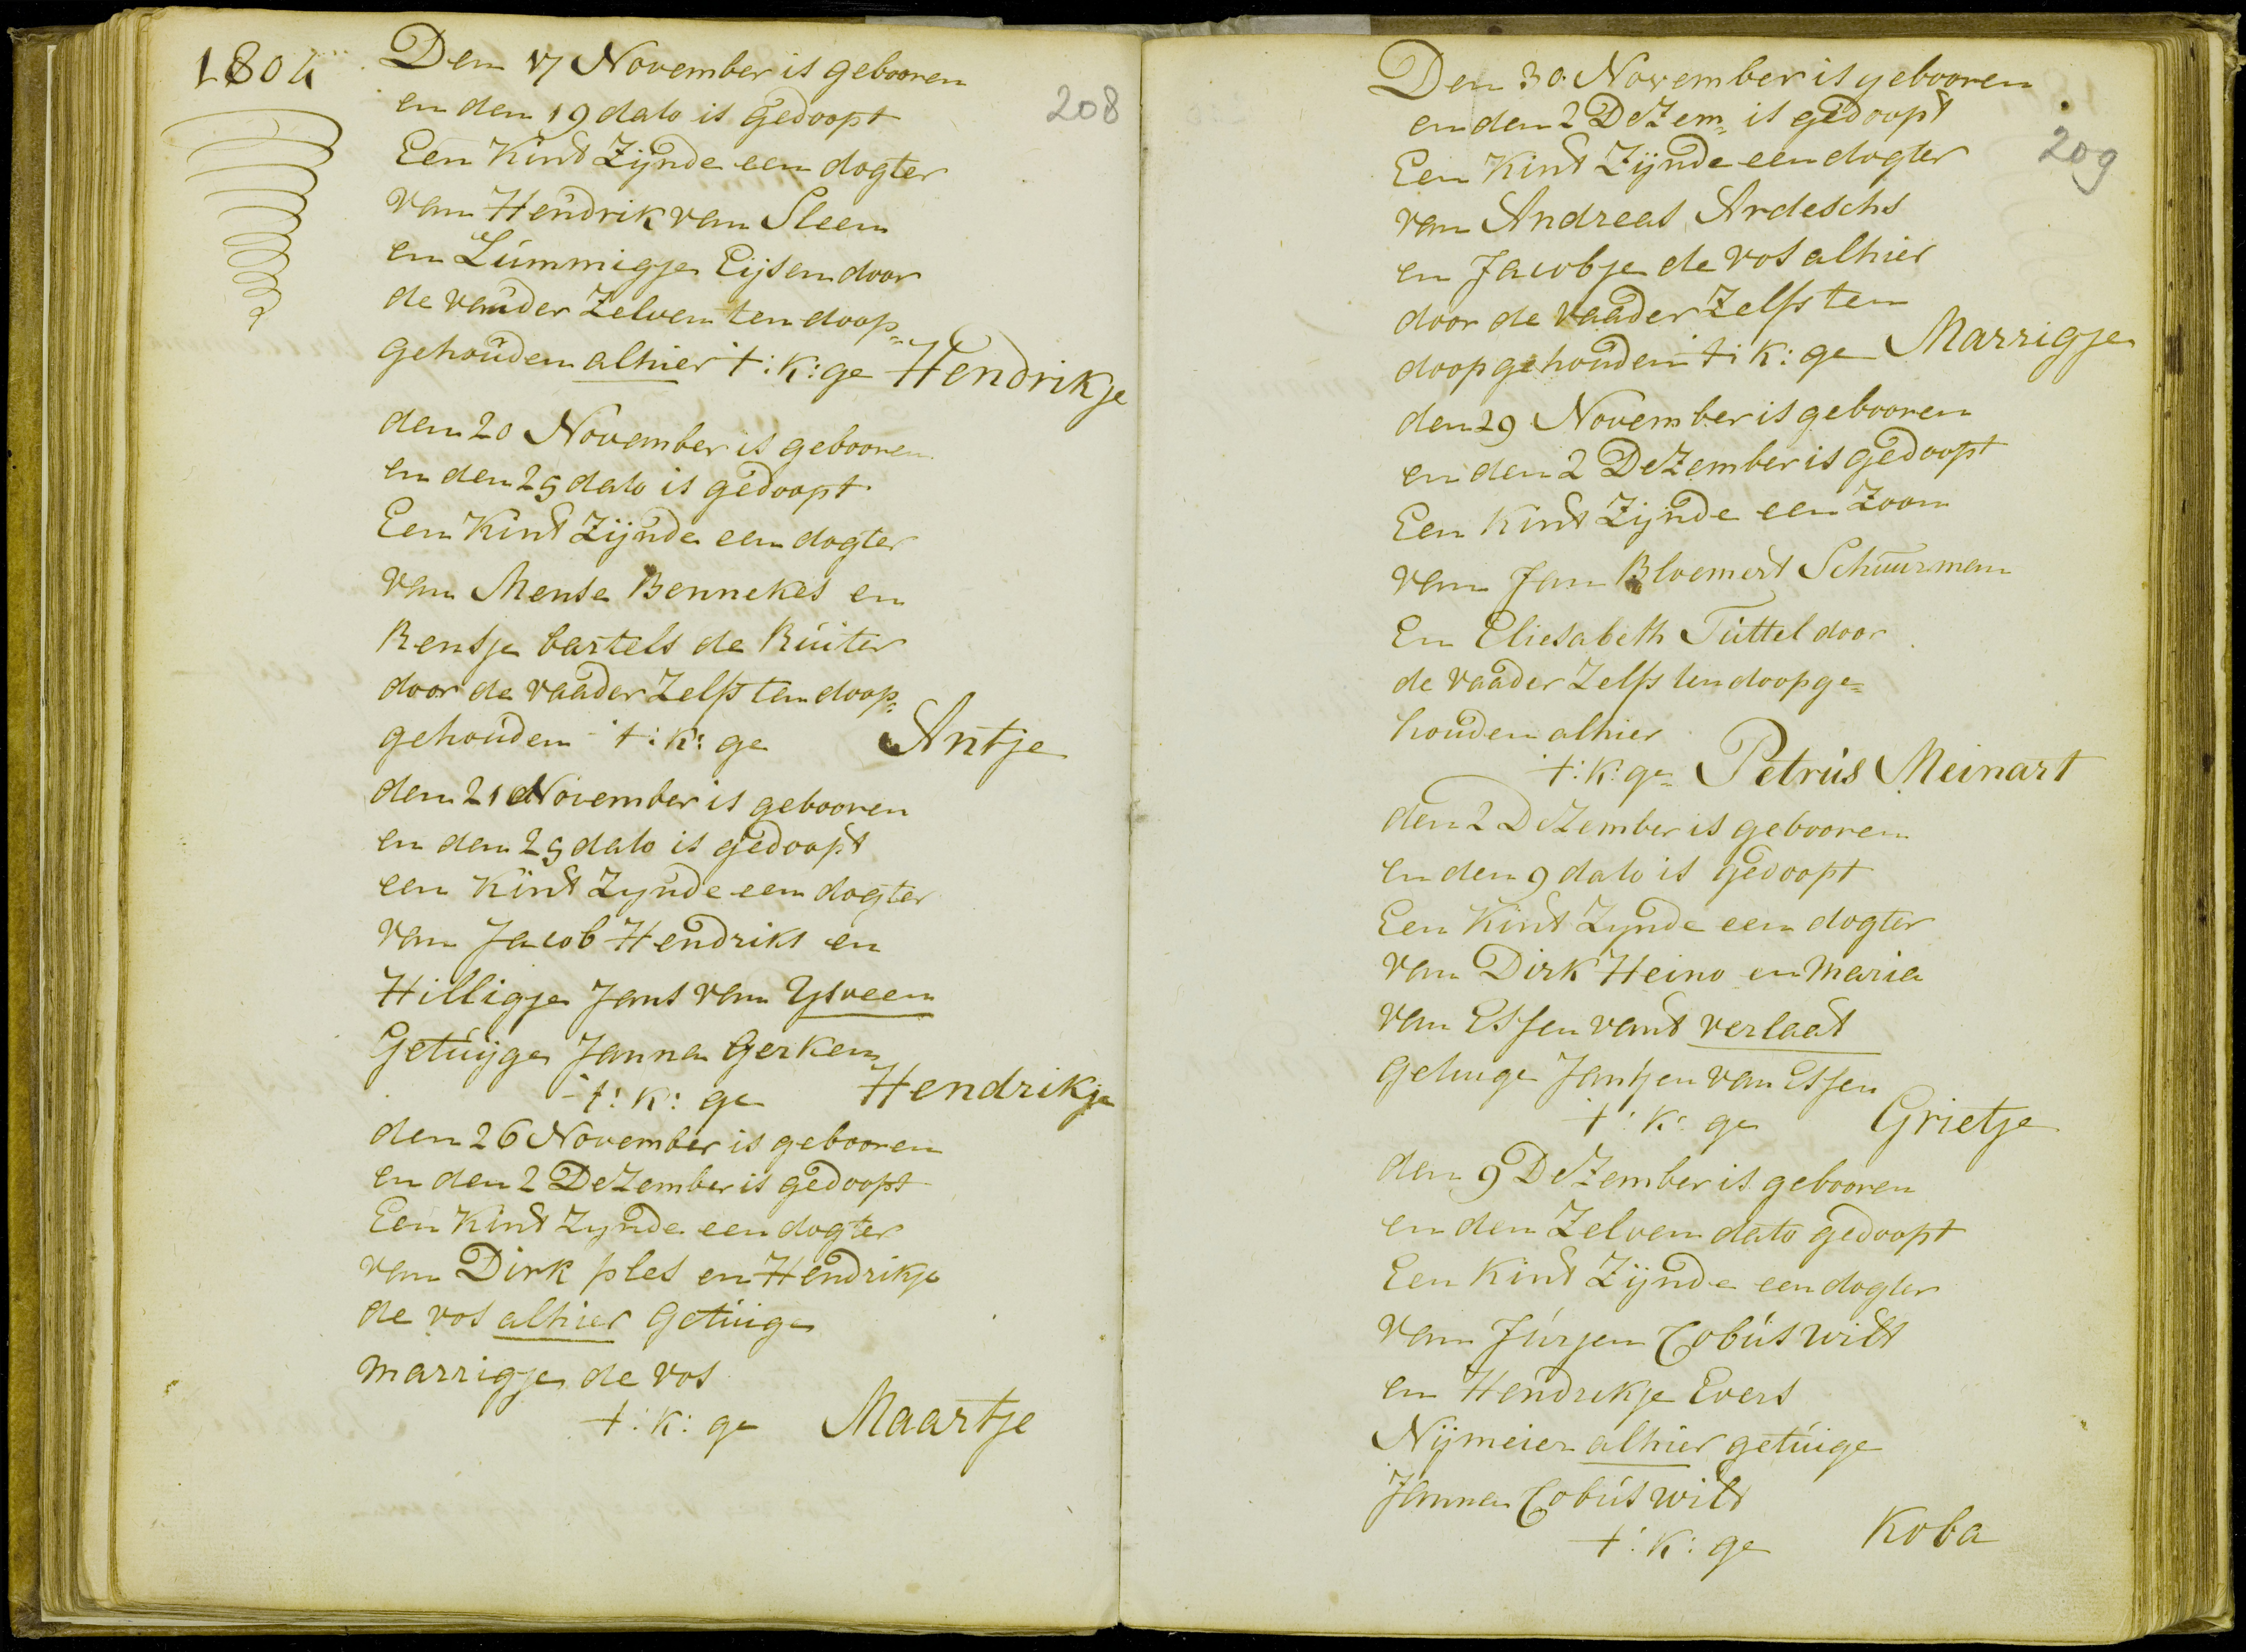 1804
208
Den 17 November is gebooren
en den 19 dato is gedoopt
Een Kint Zijnde een dogter
van Hendrik van Sleen
en Lummigje Eijsen door
de vaader Zelven ten doop„
gehouden alhier t: k: ge Hendrikje
den 20 November is gebooren
en den 25 dato is gedoopt
Een Kint Zijnde een dogter
van Mense Bennekes en
Rensje bartels de Ruiter
door de vaader Zelfs ten doop„
gehouden t: k: ge Antje
den 21 November is gebooren
en den 25 dato is gedoopt
een Kint Zynde een dogter
van Jacob Hendriks en
Hilligje Jans van Ysveen
Getuijge Janna Gerken
t: k: ge Hendrikje
den 26 November is gebooren
en den 2 DeZember is gedoopt
Een Kint Zynde een dogter
van Dirk ples en Hendrikje
de vos alhier Getuige
marrigje de vos
t: k: ge Maartje
209
Den 30 November is gebooren
en den 2 DeZem„ is gedoopt
Een Kint Zijnde een dogter
van Andreas Ardeschs
en Jacobje de vos alhier
door de vaader Zelfs ten
doop gehouden t: k: ge Marrigje
den 29 November is gebooren
en den 2 DeZember is gedoopt
Een Kint Zijnde een Zoon
van Jan Bloemert Schuurman
En Eliesabeth Tuttel door
de vaader Zelfs ten doop ge=
houden alhier
t: k: ge Petrus Meinart
den 2 DeZember is gebooren
en den 9 dato is gedoopt
Een Kint Zynde een dogter
van Dirk Heino en maria
van Essen vant verlaat
getuige Jantjen van Essen
t: k: ge Grietje
den 9 DeZember is gebooren
en den Zelven dato gedoopt
Een Kint Zijnde een dogter
van Jurjen Cobus wilt
en Hendrikje Evers
Nijmeier alhier getuige
Janna Cobus wilt
t: k: ge Koba